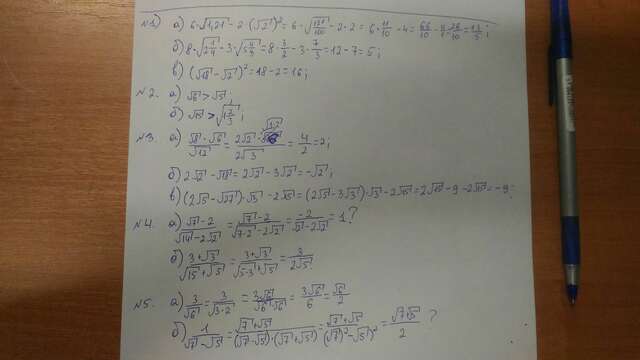 №1) а) 6·√1,21 - 2·(√2)² = 6·√121/100 - 2·2 = 6·11/10 - 4 = 66/10 - 4/1 = 26/10 = 13/5;
б) 8·√2 1/4 - 3·√5 4/9 = 8·3/2 - 3·7/3 = 12 - 7 = 5;
в) (√18 - √2)² = 18 - 2 = 16;
№2. а) √6 > √5;
б) √15 > √1 2/3;
№3. а) √8·√6/√12 = 2√2·√1·2/2√3 = 4/2 = 2;
б) 2√2 - √18 = 2√2 - 3√2 = -√2;
в) (2√5 - √27)·√3 - 2√15 = (2√5 - 3√3)·√3 - 2√15 = 2√15 - 9 - 2√15 = -9.
№4. а) √7 - 2/√14 - 2√2 = √7 - 2/√7·2 - 2√2 = -2/√2 - 2√2 = 1?
б) 3+√3/√15+√5 = 3+√3/√5·3+√5 = 3/2√5
№5. а) 3/√6 = 3/√3·2 = 3√6/√6·√6 = 3√6/6 = √6/2
б) 1/√7-√5 = √7+√5/(√7-√5)·(√7+√5) = √7+√5/(√7)²-√5)² = √7+√5/2 ?